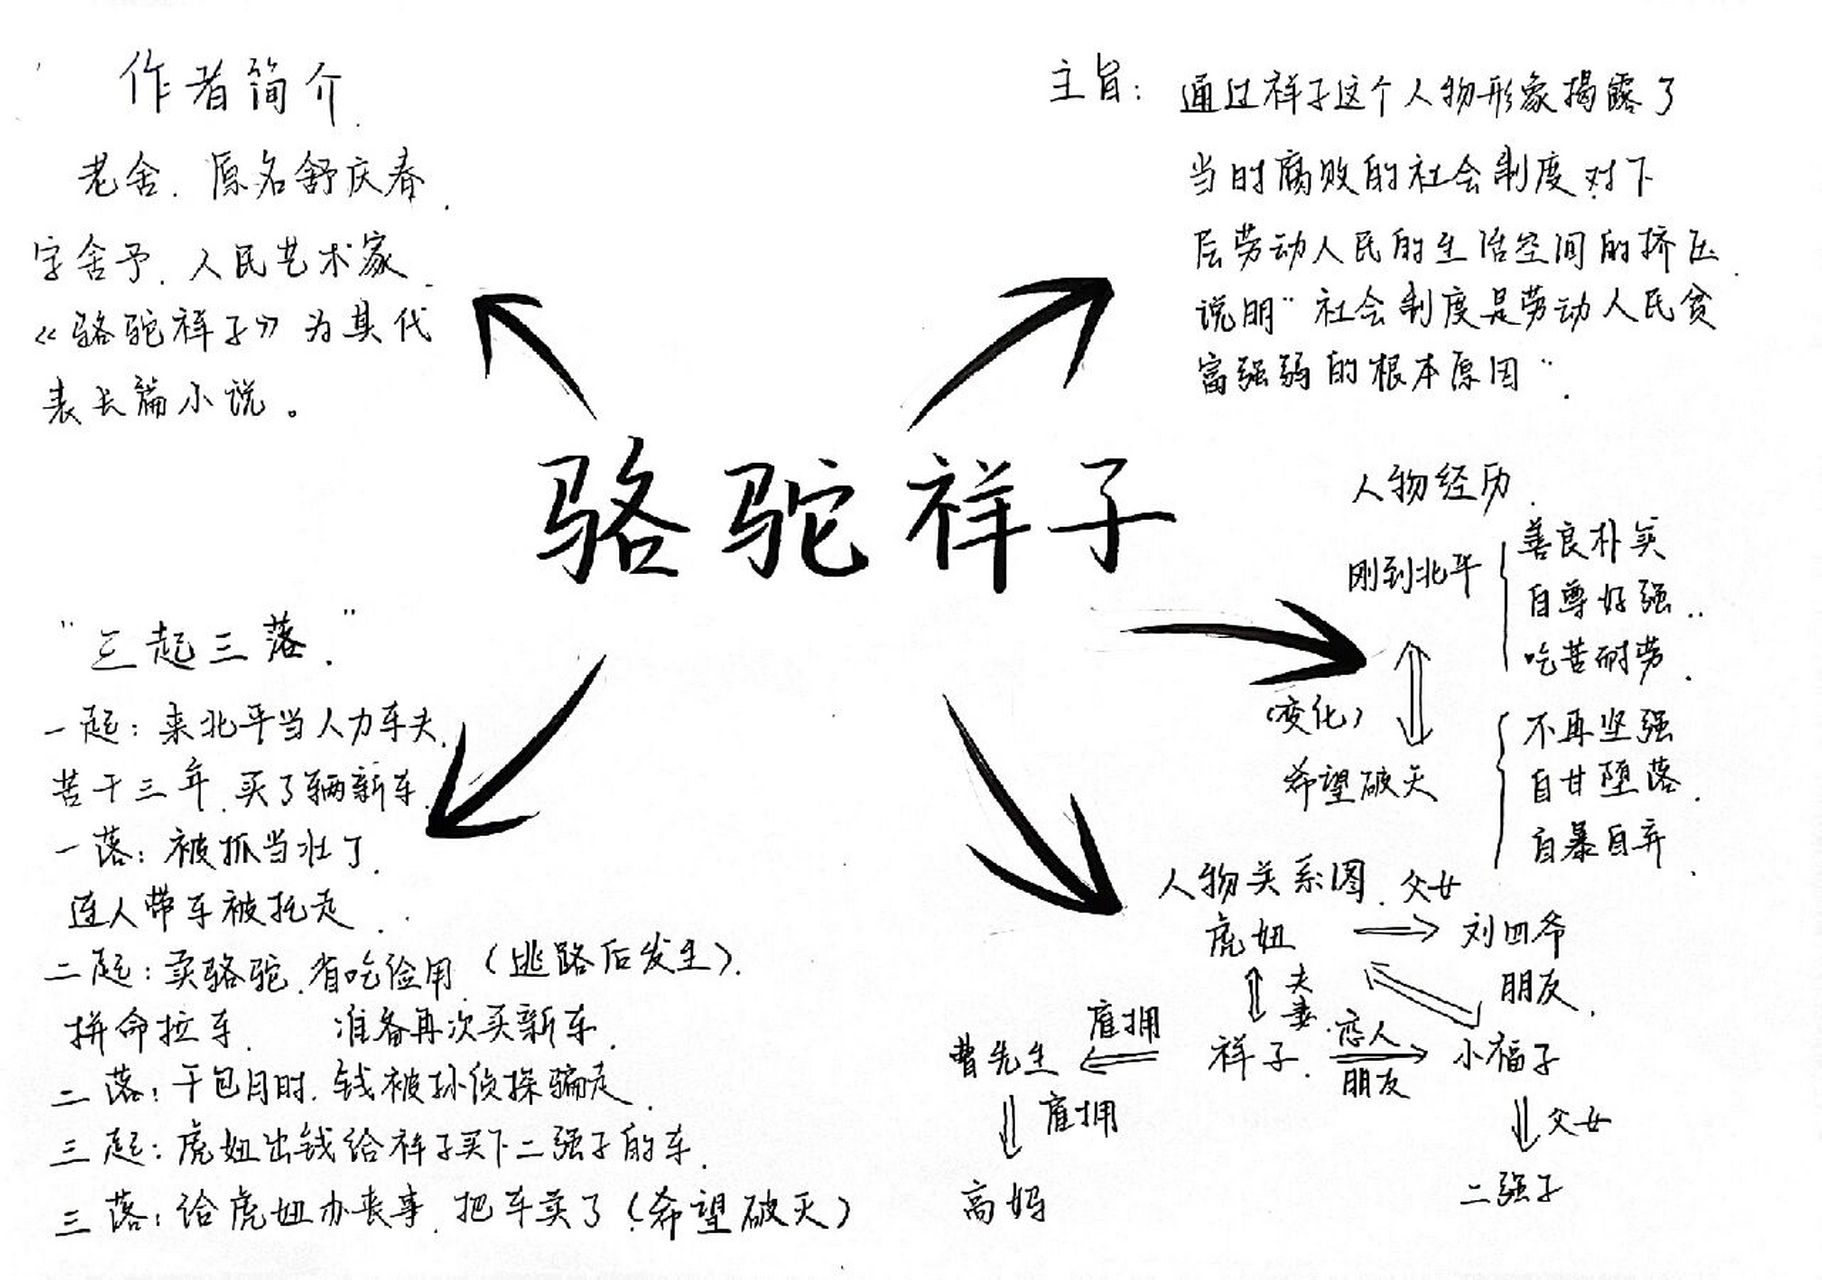 作者简介.
老舍. 原名舒庆春.
字舍予. 人民艺术家.
《骆驼祥子》为其代
表长篇小说。
主旨: 通过祥子这个人物形象揭露了
当时腐败的社会制度对下
层劳动人民的生活空间的挤压.
说明“社会制度是劳动人民贫
富强弱的根本原因”.
骆驼祥子
“三起三落.”
一起: 来北平当人力车夫.
苦干三年.买了辆新车.
一落: 被抓当壮丁.
连人带车被托走.
二起: 卖骆驼.省吃俭用.(逃路后发生).
拼命拉车. 准备再次买新车.
二落: 干包月时. 钱被孙侦探骗走.
三起: 虎妞出钱给祥子买下二强子的车.
三落: 给虎妞办丧事.把车卖了(希望破灭)
人物经历.
刚到北平
善良朴实
自尊好强..
吃苦耐劳.
(变化)
希望破灭
不再坚强
自甘堕落.
自暴自弃.
人物关系图.
父女
虎妞
刘四爷
夫妻.
朋友.
曹先生
雇拥
祥子.
恋人
朋友
小福子
雇拥
父女
高妈
二强子